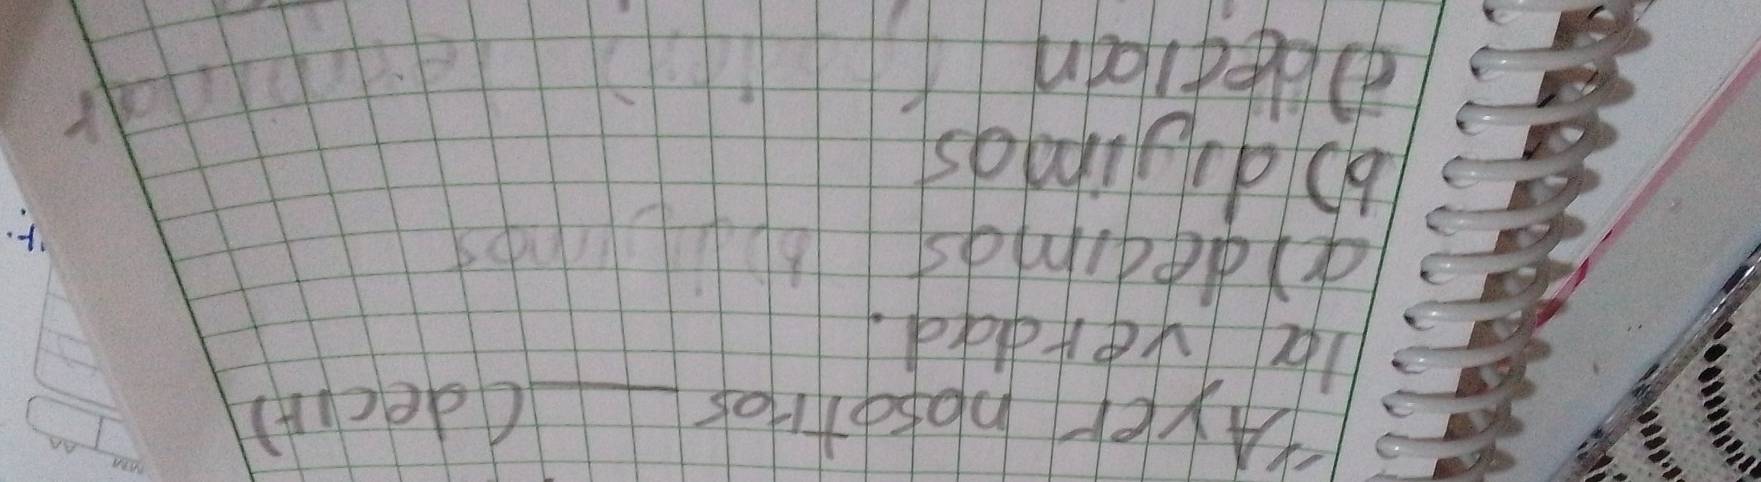 "Ayer nosotros ____ (decir)
la verdad.
a) decimos
b) dijimos
c) decian